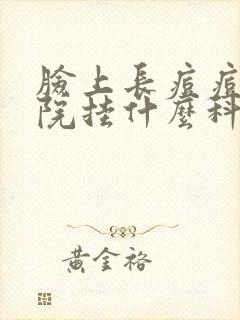 臉上長痘痘
院挂什麼科
黃金裕